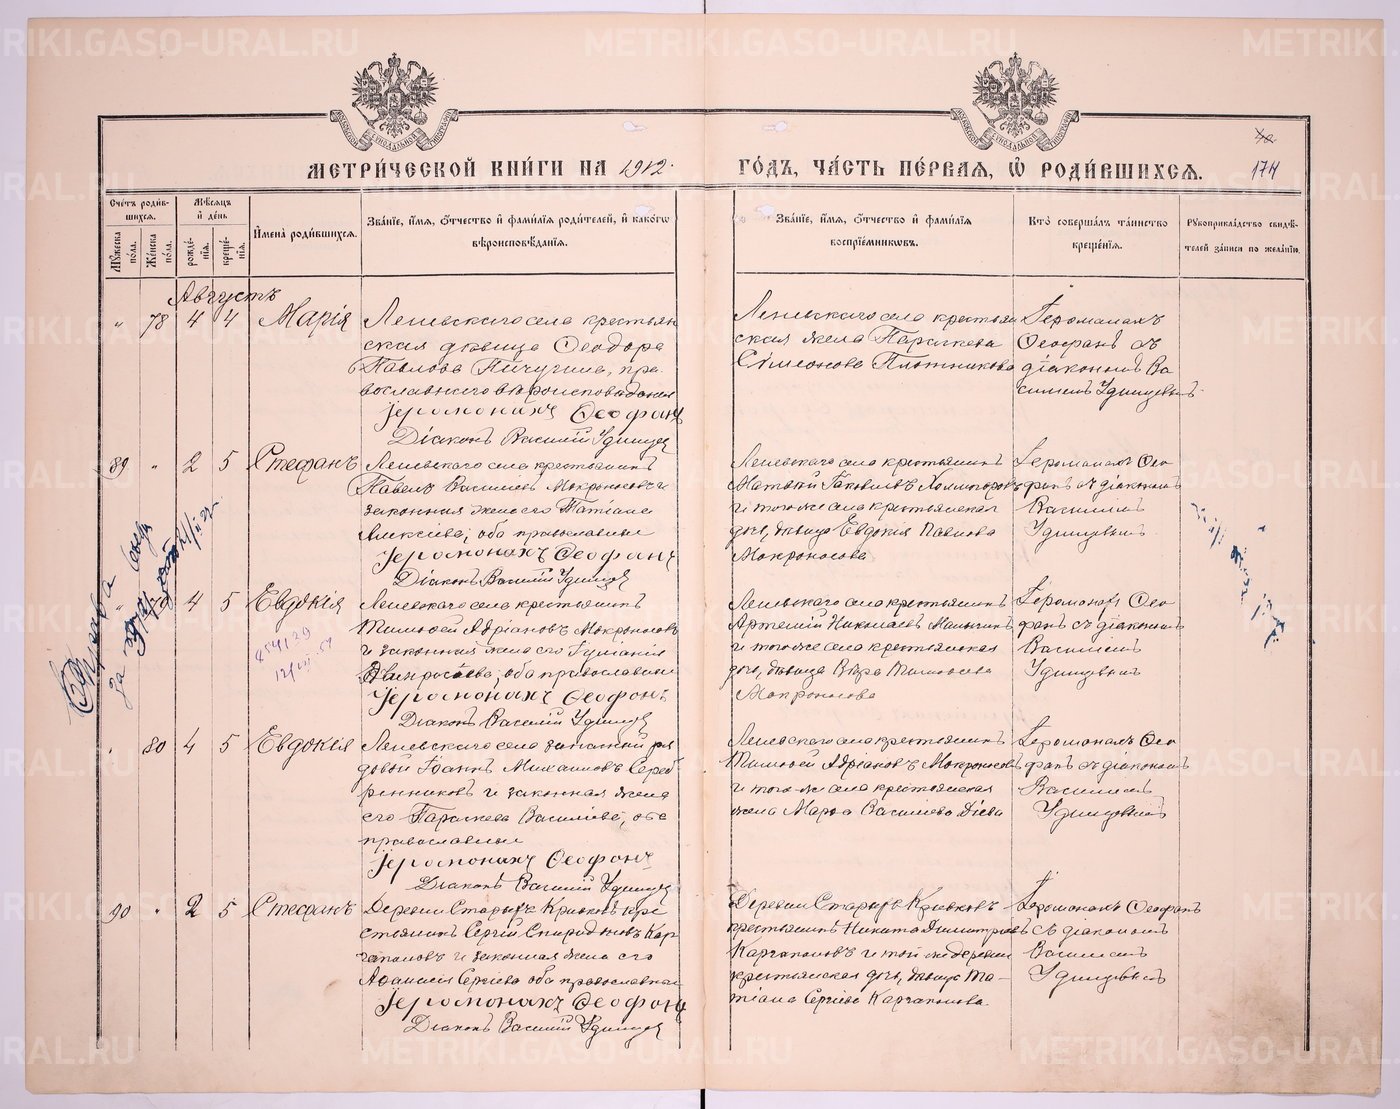 МЕТРИ́ЧЕСКОЙ КНИ́ГИ НА 1912.
ГО́ДЪ, ЧА́СТЬ ПЕ́РВАЯ, Ѡ РОДИ́ВШИХСЯ.
174
Сче́тъ роди́вшихся.
Му́жеска по́ла.
Же́нска по́ла.
Мѣ́сяцъ и҆ де́нь
рожде́нїя.
креще́нїя.
И҆мена̀ роди́вшихся.
Зва́нїе, и҆́мя, ѻ҆́тчество и҆ фами́лїя роди́телей, и҆ како́гѡ вѣроисповѣ́данїя.
Зва́нїе, и҆́мя, ѻ҆́тчество и҆ фами́лїя воспрїе́мниковъ.
Кто̀ соверша́лъ та́инство креще́нїя.
Рꙋкоприкла́дство свидѣ́телей за́писи по жела́нїю.
Августъ
" 78 4 4 Марія
Леневскаго села крестьян
ская дѣвица Ѳеодора
Павлова Пичугина, пра
вославнаго вѣроисповѣданія
Іеромонахъ Ѳеофанъ
Діаконъ Василій Удинцев
Леневскаго села крестьян
ская жена Параскева
Симонова Плотникова
Іеромонахъ
Ѳеофанъ съ
діакономъ Ва
силіемъ Удинцевымъ
89 " 2 5 Стефанъ
Леневскаго села крестьянинъ
Павелъ Васильевъ Мокроносовъ и
законная жена его Татіана
Алексѣева; оба православные
Іеромонахъ Ѳеофанъ
Діаконъ Василій Удинцев
Леневскаго села крестьянинъ
Матвей Іаковлевъ Холмогоровъ
и того же села крестьянская
дочь, дѣвица Евдокія Павлова
Мокроносова
Іеромонахъ Ѳео
фанъ съ діакономъ
Василіемъ
Удинцевымъ
" 79 4 5 Евдокія
Леневскаго села крестьянинъ
Тимофей Адріановъ Мокроносовъ
и законная жена его Іуліанія
оба православные
Іеромонахъ Ѳеофанъ
Діаконъ Василій Удинцев
Леневскаго села крестьянинъ
Артемій Николаевъ
и того же села крестьянская
дочь, дѣвица Вѣра Тимофеева
Мокроносова
Іеромонахъ Ѳео
фанъ съ діакономъ
Василіемъ
Удинцевымъ
" 80 4 5 Евдокія
Леневскаго села запасный ря
довой Іоаннъ Михаиловъ Сереб
ренниковъ и законная жена
его Параскева Васильева, оба
православные
Іеромонахъ Ѳеофанъ
Діаконъ Василій Удинцев
Леневскаго села крестьянинъ
Тимофей Адріановъ Мокроносовъ
и того же села крестьянская
жена Марѳа Васильева Діева
Іеромонахъ Ѳео
фанъ съ діакономъ
Василіемъ
Удинцевымъ
90 " 2 5 Стефанъ
Деревни Старыхъ Кривковъ кре
стьянинъ Сергій Спиридоновъ Кар
гаполовъ и законная жена его
Аѳанасія Сергіева оба православные
Іеромонахъ Ѳеофанъ
Діаконъ Василій Удинцев
Деревни Старыхъ Кривковъ
крестьянинъ Никита Димитріевъ
Каргаполовъ и той же деревни
крестьянская дочь, дѣвица Та
тіана Сергіева Каргаполова.
Іеромонахъ Ѳеофанъ
съ діакономъ
Василіемъ
Удинцевымъ
METRIKI.GASO-URAL.RU